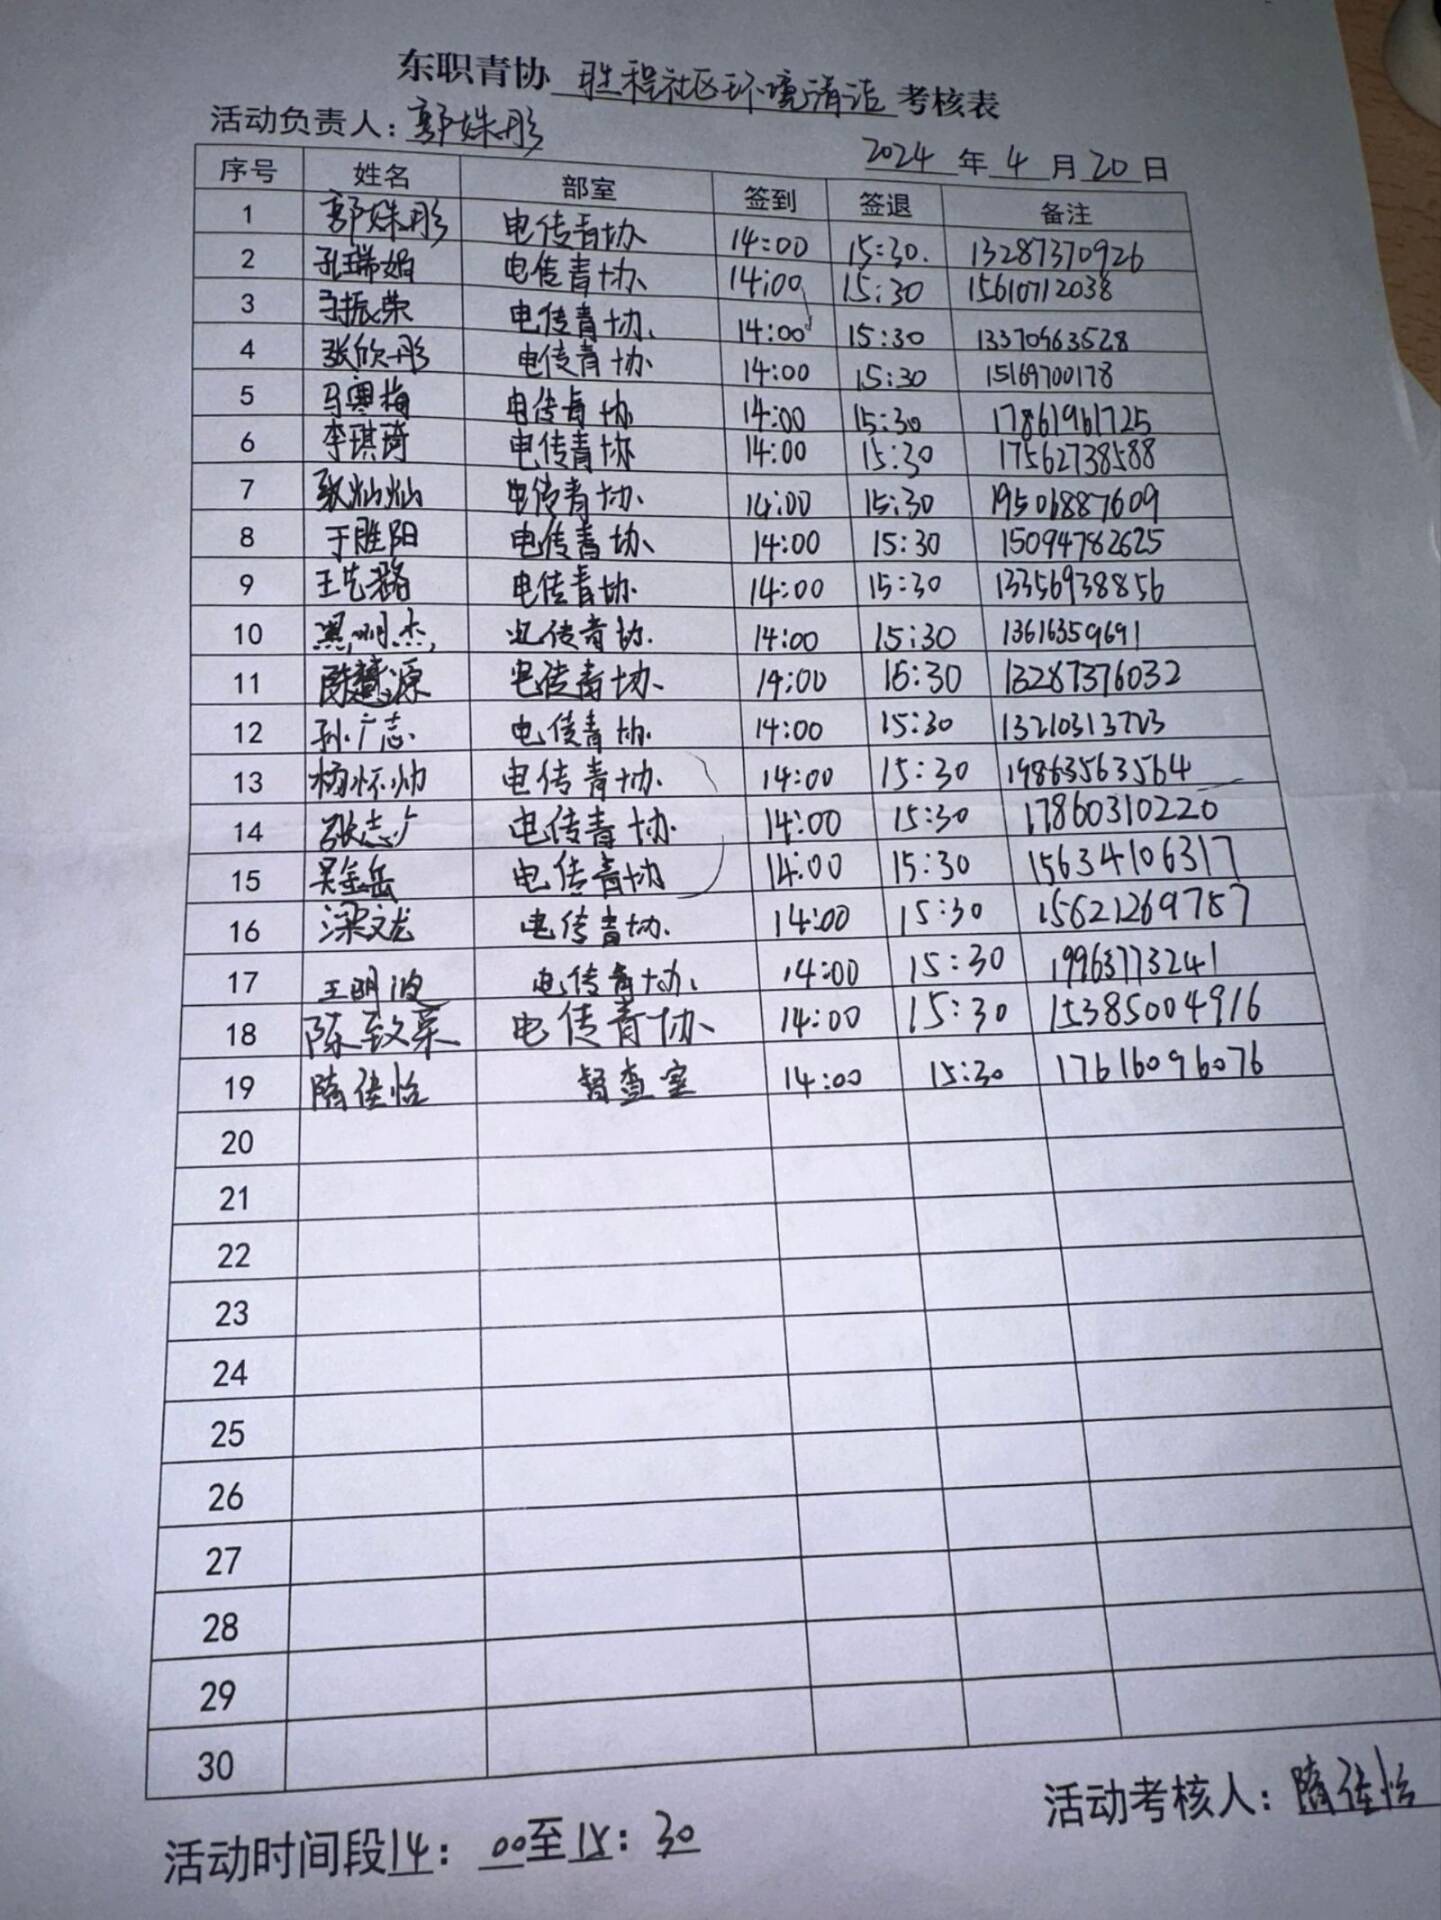 东职青协 胜程社区环境清洁 考核表
活动负责人：郭姝彤
2024 年 4 月 20 日
序号 姓名 部室 签到 签退 备注
1 郭姝彤 电传青协 14:00 15:30. 13287370926
2 孔瑞娟 电传青协. 14:00 15:30 15610712038
3 于振荣 电传青协. 14:00 15:30 13370963528
4 张欣彤 电传青协. 14:00 15:30 15169700178
5 马寒梅 电传青协. 14:00 15:30 17861961725
6 李琪琦 电传青协 14:00 15:30 17562738588
7 张灿灿 电传青协. 14:00 15:30 19506887609
8 于胜阳 电传青协、 14:00 15:30 15094782625
9 王艺潞 电传青协. 14:00 15:30 13356938856
10 明杰 电传青协. 14:00 15:30 13616359691
11 陈慧源 电传青协、 14:00 15:30 13287376032
12 孙广志 电传青协. 14:00 15:30 13210313723
13 杨怀帅 电传青协. 14:00 15:30 19863563564
14 张志广 电传青协. 14:00 15:30 17860310220
15 吴金岳 电传青协 14:00 15:30 15634106317
16 梁文龙 电传青协. 14:00 15:30 15621269787
17 王明波 电传青协、 14:00 15:30 19963773241
18 陈致豪 电传青协、 14:00 15:30 15385004916
19 隋佳怡 督查室 14:00 15:30 17616096076
20
21
22
23
24
25
26
27
28
29
30
活动考核人：隋佳怡
活动时间段14：00至15：30